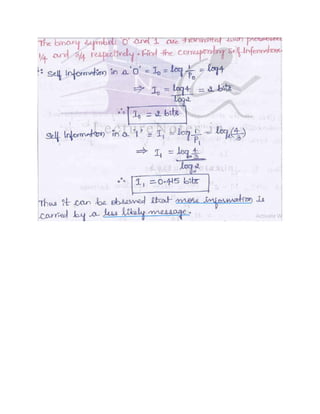 The binary symbols '0' and '1' are transmitted with probabilities
1/4 and 3/4 respectively. Find the corresponding self Information.
Self Information in a '0' = I₀ = log 1/P₀ = log4
⇒ I₀ = log4/log2 = 2 bits
∴ I₀ = 2 bits
Self Information in a '1' = I₁ = log 1/P₁ = log(4/3)
⇒ I₁ = log 4/3 / log 2
∴ I₁ = 0.415 bits
Thus it can be observed that more information is
carried by a less likely message.
Activate W